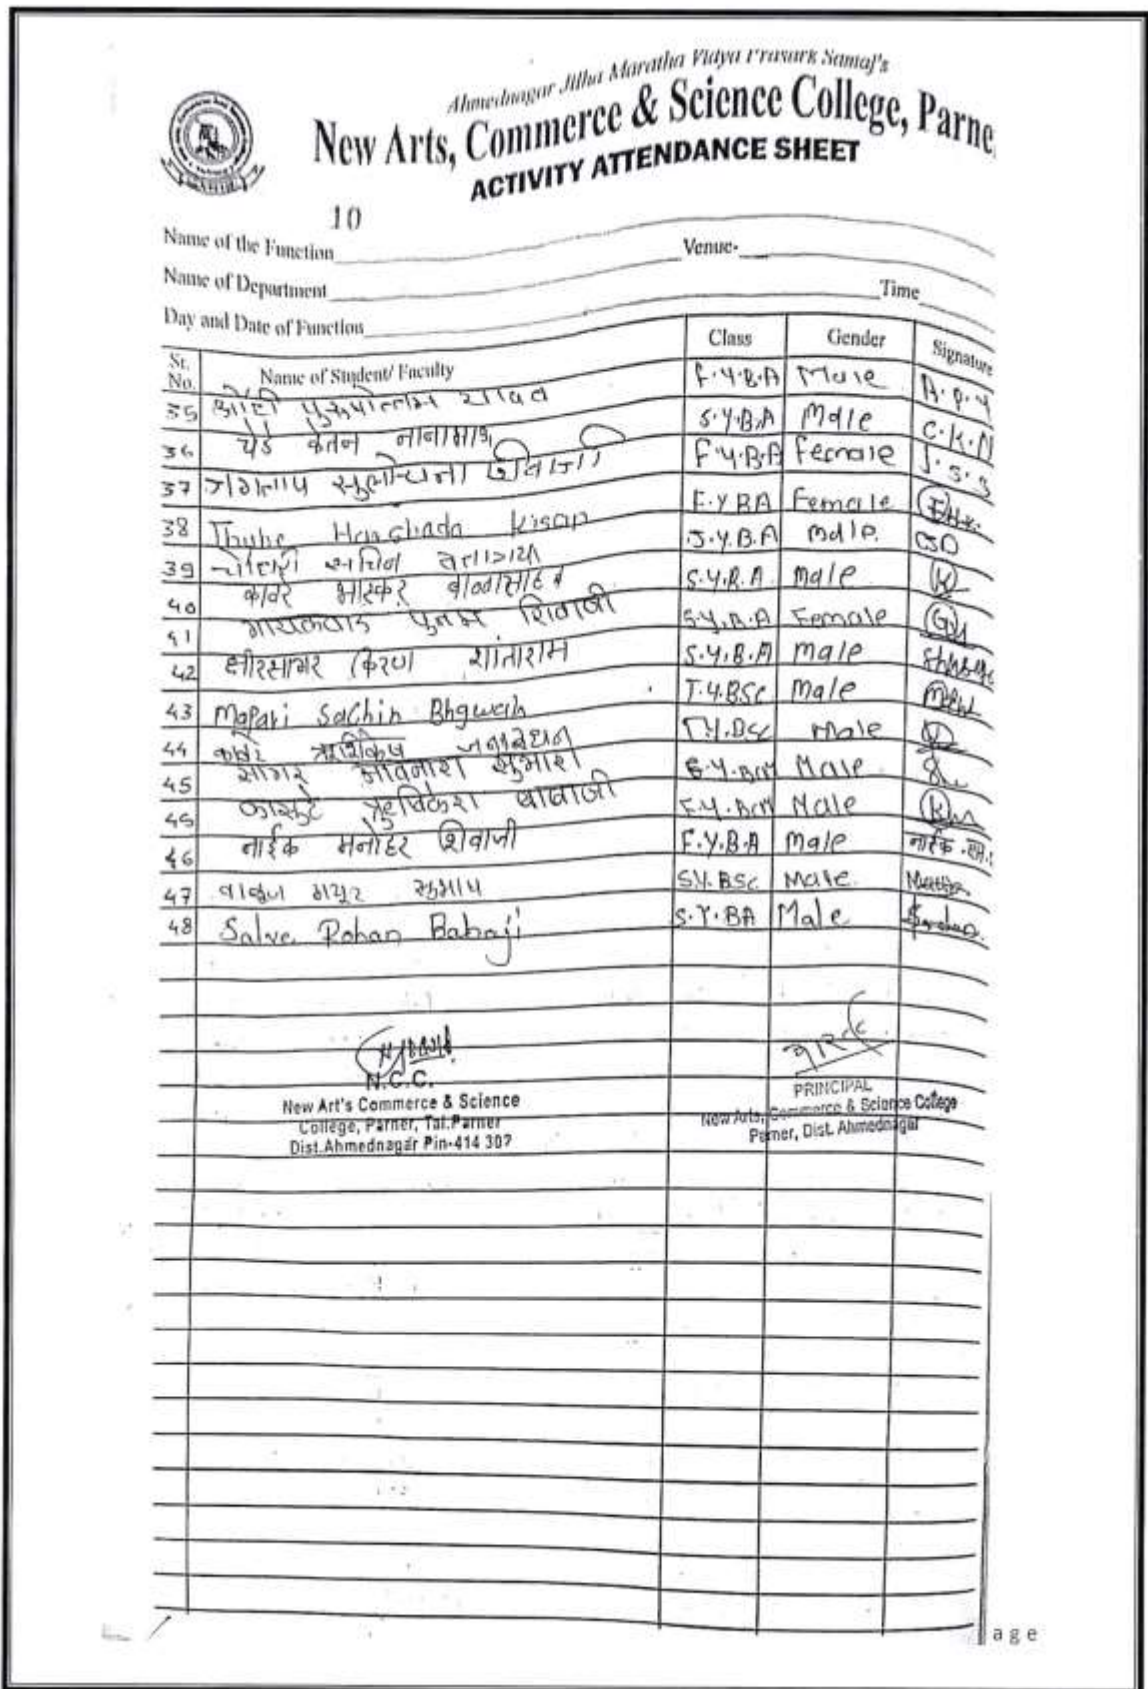 Ahmednagar Jilha Maratha Vidya Prasark Samaj's
New Arts, Commerce & Science College, Parne
ACTIVITY ATTENDANCE SHEET
10
Name of the Function Venue-
Name of Department Time
Day and Date of Function
Sr. No. Name of Student/ Faculty Class Gender Signature
35 पुरुषोत्तम यादव F.Y.B.A Male A.P.Y
36 चेडे केतन नानाभाऊ S.Y.B.A Male C.K.N
37 जगताप सुलोचना शिवाजी F.Y.B.A Female J.S.S
38 Thube Kisan F.Y BA Female
39 चौधरी सचिन S.Y.B.A Male
40 कावरे भास्कर बाळासाहेब S.Y.B.A Male
41 गायकवाड पुनम शिवाजी S.Y.B.A Female
42 क्षीरसागर किरण शांताराम S.Y.B.A Male
43 Mapari Sachin Bhgwan T.Y.BSc Male
44 कावरे ऋषिकेष जनार्दन T.Y.BSc Male
45 सागर अविनाश सुभाश S.Y.BCM Male
45 कासुटे ऋषिकेश बाबाजी F.Y.BCM Male
46 नाईक मनोहर शिवाजी F.Y.B.A Male नाईक
47 मयूर सुभाष S.Y.BSc Male
48 Salve Rohan Babaji S.Y.BA Male
N.C.C.
New Art's Commerce & Science
College, Parner, Tal.Parner
Dist.Ahmednagar Pin-414 307
PRINCIPAL
New Arts, Commerce & Science College
Parner, Dist. Ahmednagar
age